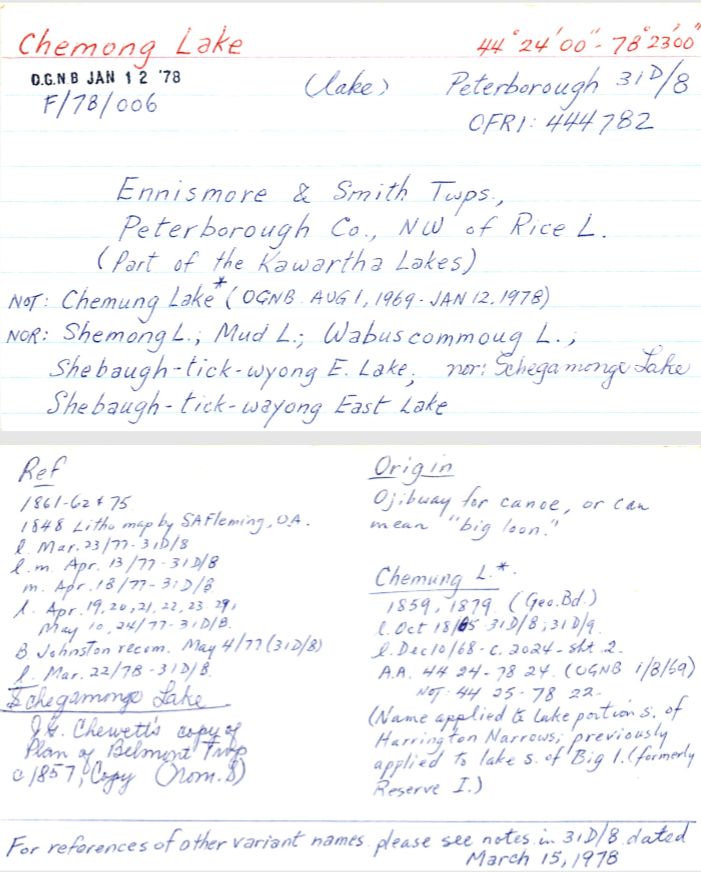 Chemong Lake
44°24'00" - 78°23'00"
O.G.N.B JAN 12 '78
(lake)
Peterborough 31D/8
F/78/006
OFRI: 444782
Ennismore & Smith Twps.,
Peterborough Co., NW of Rice L.
(Part of the Kawartha Lakes)
NOT: Chemung Lake* (OGNB AUG 1, 1969 - JAN 12, 1978)
NOR: Shemong L.; Mud L.; Wabuscommoug L.;
Shebaugh-tick-wyong E. Lake; nor: Schegamonge Lake
Shebaugh-tick-wayong East Lake
Ref
1861-62 & 75
1848 Litho map by SAFleming, O.A.
l. Mar. 23/77 - 31D/8
l.m. Apr. 13/77 - 31D/8
m. Apr. 18/77 - 31D/8
l. Apr. 19, 20, 21, 22, 23, 29,
May 10, 24/77 - 31D/8.
B Johnston recom. May 4/77 (31D/8)
l. Mar. 22/78 - 31D/8.
Schegamonge Lake
J.G. Chewett's copy of
Plan of Belmont Twp
c 1857, Copy (Nom. 8)
Origin
Ojibway for canoe, or can
mean "big loon."
Chemung L.*.
1859, 1879. (Geo. Bd.)
l. Oct 18/65 31D/8; 31D/9
l. Dec 10/68 - c. 2024 - sht. 2.
A.A. 44 24 - 78 24. (OGNB 1/8/69)
NOT - 44 25 - 78 22 -
(Name applied to lake portion s. of
Harrington Narrows; previously
applied to lake s. of Big I. (formerly
Reserve I.)
For references of other variant names please see notes in 31D/8 dated
March 15, 1978